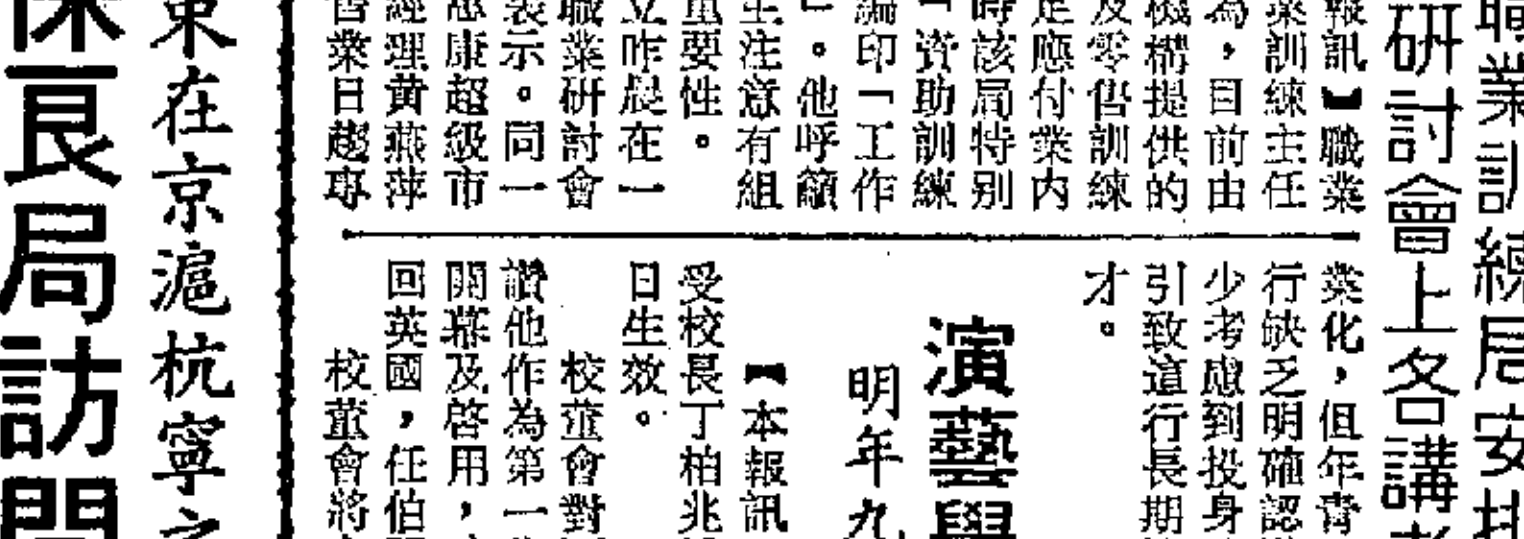 職業訓練局安排
研討會上各講者
報訊】職業
業訓練主任
為，目前由
機構提供的
及零售訓練
足應付業内
時該局特别
「資助訓練
編印「工作
」。他呼籲
生注意有組
重要性。
立昨晨在一
職業研討會
表示。同一
惠康超級市
經理黄燕萍
售業日趨專
業化，但年青
行缺乏明確認
少考慮到投身
引致這行長期
才。
演藝學
明年九
【本報訊
受校長丁柏兆
日生效。
校董會對
讚他作為第一
開幕及啓用，
回英國，任伯
校董會將
東在京滬杭寧之
良局訪問